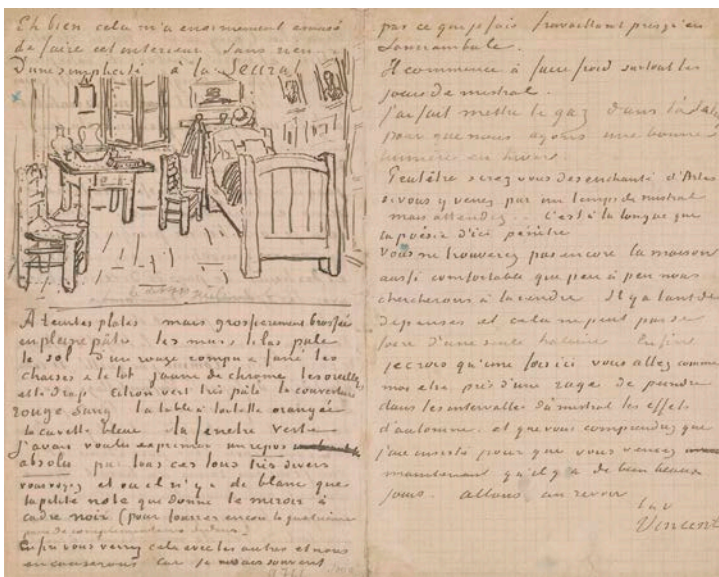 Eh bien cela m'a enormement amusé
de faire cet interieur sans rien.
D'une simplicité à la Seurat
A teintes plates mais grossierement brossées
en pleine pâte les murs lilas pale
le sol d'un rouge rompu & fané les
chaises & le lit jaune de chrome les oreillers
et le drap citron vert très pâle la couverture
rouge sang la table à toilette orangée
la cuvette bleue la fenetre verte
J'avais voulu exprimer un repos
absolu par tous ces tons très divers
vous voyez et ou il n'y a de blanc que
la petite note que donne le miroir à
cadre noir (pour fourrer encore la quatrieme
paire de complementaires dedans)
Enfin vous verrez cela avec les autres et nous
en causerons car je ne sais souvent
pas ce que je fais travaillant presqu'en
somnambule.
Il commence à faire froid surtout les
jours de mistral.
J'ai fait mettre le gaz dans
pour que nous ayons une bonne
lumiere en hiver
Peutêtre serez vous desenchanté d'Arles
si vous y venez par un temps de mistral
mais attendez .. C'est à la longue que
la poésie d'ici pénètre
Vous ne trouverez pas encore la maison
aussi comfortable que peu à peu nous
chercherons à la rendre Il y a tant de
depenses et cela ne peut pas se
faire d'une seule haleine Enfin
je crois qu'une fois ici vous allez comme
moi etre pris d'une rage de peindre
dans les intervalles du mistral les effets
d'automne. et que vous comprendrez que
j'aie insisté pour que vous venez
maintenant qu'il y a de bien beaux
jours. allons au revoir
t.à v
Vincent